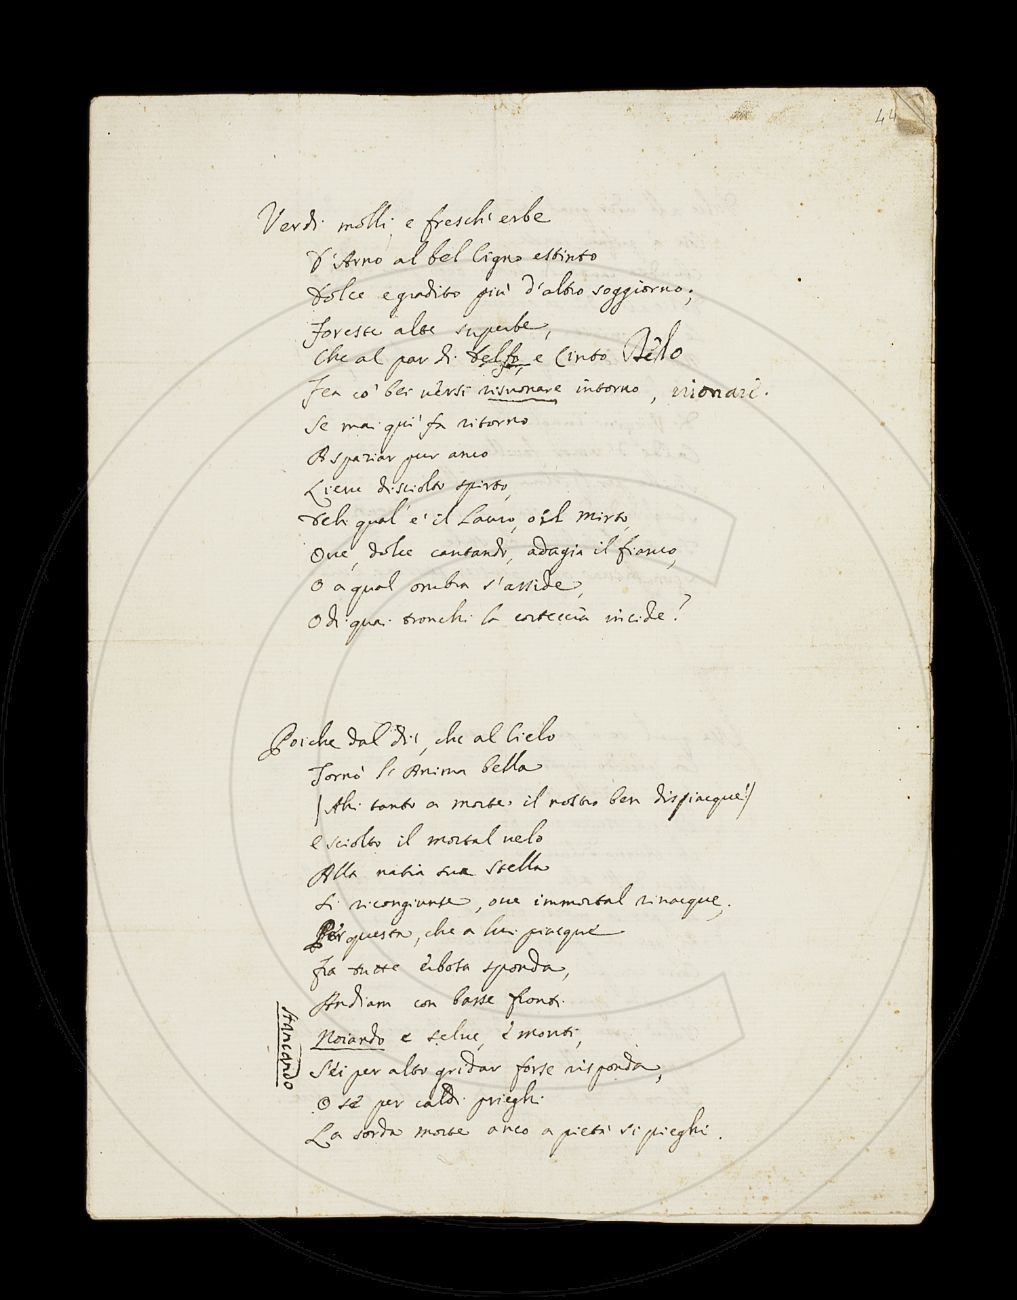 44
Verdi molli, e freschi erbe
D'Arno al bel Cigno estinto
Dolce e gradito più d'altro soggiorno;
Foreste alte superbe,
Che al par di Delfo, e Cinto Delo
Fea co' bei versi risuonare intorno,
Se mai quì fa ritorno
A spaziar pur anco
Lieve disciolto spirto,
Deh qual' è il Lauro, o il Mirto,
Ove, dolce cantando, adagia il fianco,
O a qual ombra s'asside,
O di quai tronchi la corteccia incide?
Poiche dal dì, che al Cielo
Tornò l'Anima bella
(Ahi tanto a morte il nostro ben dispiacque!)
e sciolto il mortal velo
Alla natia sua stella
Si ricongiunse, ove immortal rinacque,
Per questa, che a lui piacque
fra tutte erbosa sponda,
Andiam con basse fronti
Stancando
Noiando e selve, e monti,
S'ei per alto gridar forse risponda,
O se per caldi prieghi
La sorda morte anco a pietà si pieghi.